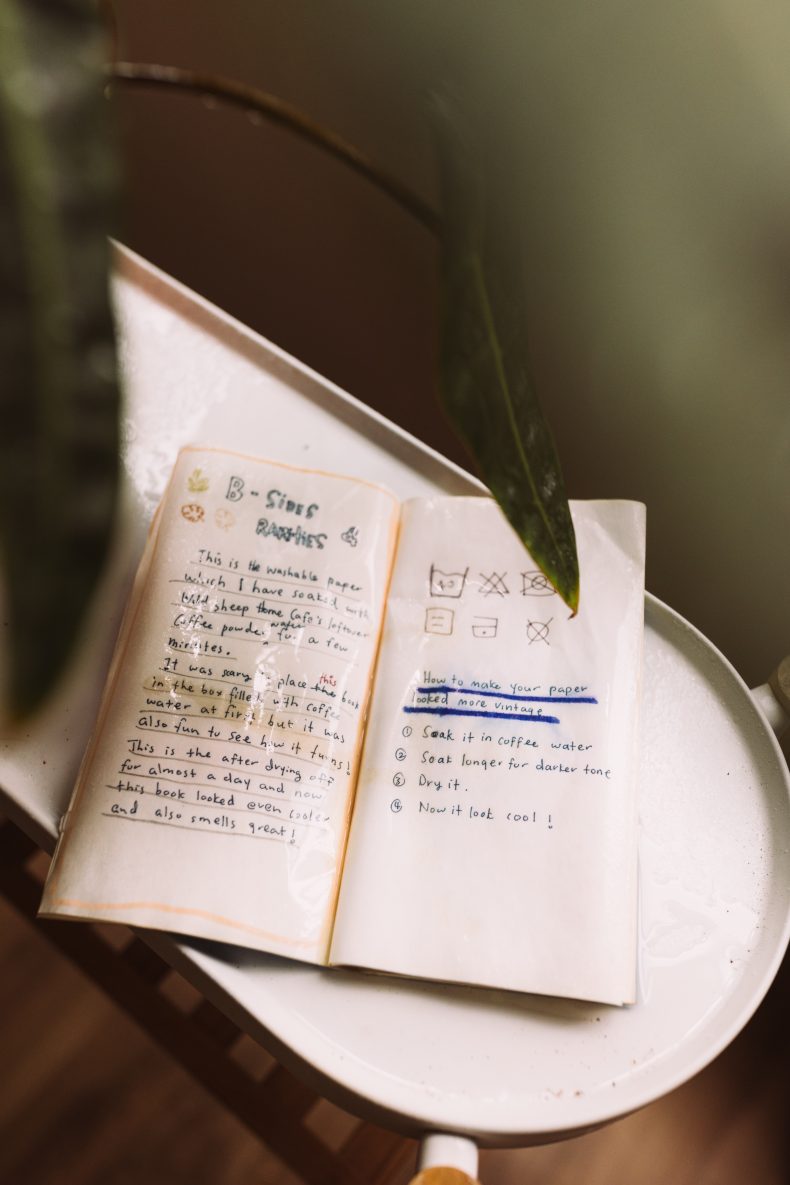 B-SIDES
RARITIES
This is the washable paper
which I have soaked with
Wild sheep Home Cafe's leftover
Coffee powder water for a few
minutes.
It was scary to place this book
in the box filled with coffee
water at first but it was
also fun to see how it turns!
This is the after drying off
for almost a day and now
this book looked even cooler
and also smells great!
40
How to make your paper
looked more vintage
① Soak it in coffee water
② Soak longer for darker tone
③ Dry it.
④ Now it look cool !